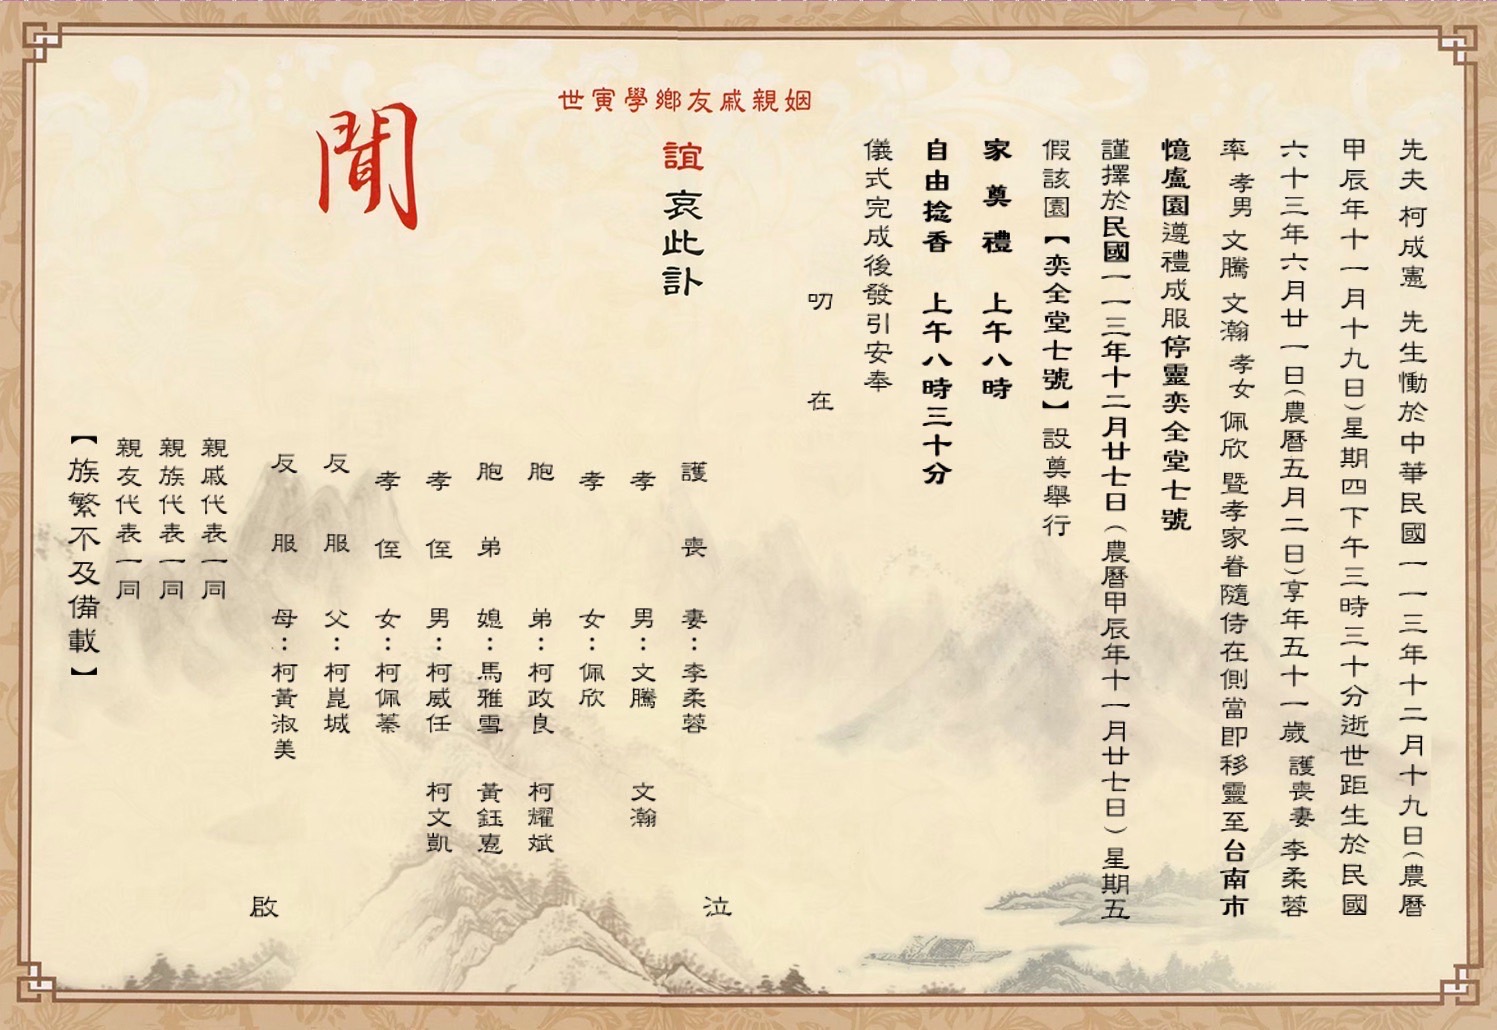 先夫 柯成憲 先生慟於中華民國一一三年十二月十九日(農曆
甲辰年十一月十九日)星期四下午三時三十分逝世距生於民國
六十三年六月廿一日(農曆五月二日)享年五十一歲 護喪妻 李柔蓉
率 孝男 文騰 文瀚 孝女 佩欣 暨孝家眷隨侍在側當即移靈至台南市
憶盧園遵禮成服停靈奕全堂七號
謹擇於民國一一三年十二月廿七日(農曆甲辰年十一月廿七日)星期五
假該園【奕全堂七號】設奠舉行
家奠禮 上午八時
自由捻香 上午八時三十分
儀式完成後發引安奉
叨在
姻親戚友鄉學寅世
誼 哀此訃
聞
護喪妻:李柔蓉
孝男:文騰 文瀚
孝女:佩欣
胞弟:柯政良 柯耀斌
胞弟媳:馬雅雪 黃鈺惠
孝侄男:柯威任 柯文凱
孝侄女:柯佩蓁
反服父:柯崑城
反服母:柯黃淑美
泣
啟
親戚代表一同
親族代表一同
親友代表一同
【族繁不及備載】